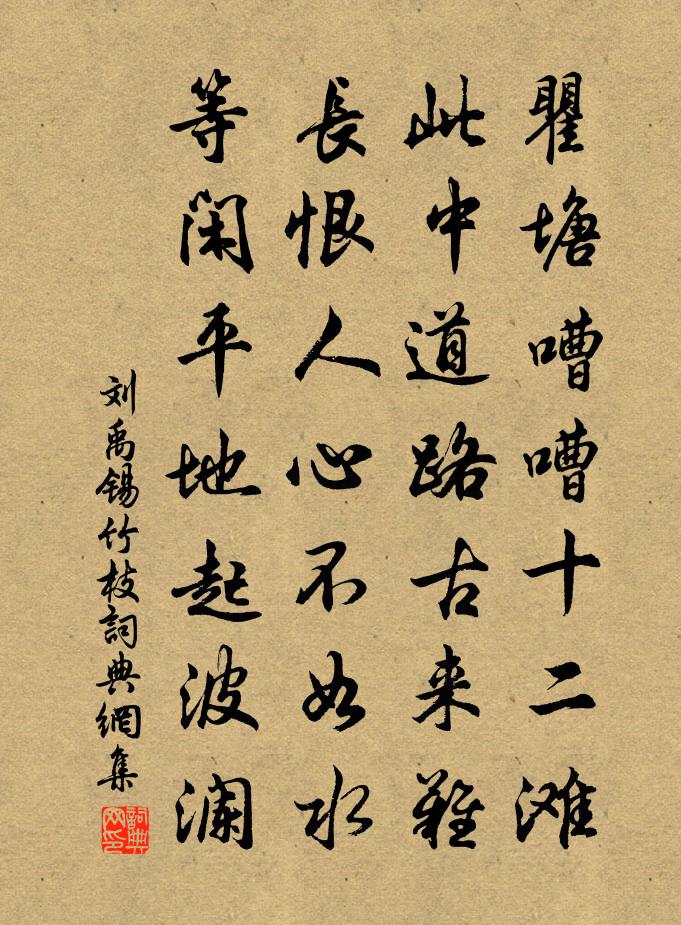 瞿塘嘈嘈十二滩
此中道路古来難
長恨人心不如水
等閑平地起波澜
刘禹锡竹枝詞典網集
詞典網印